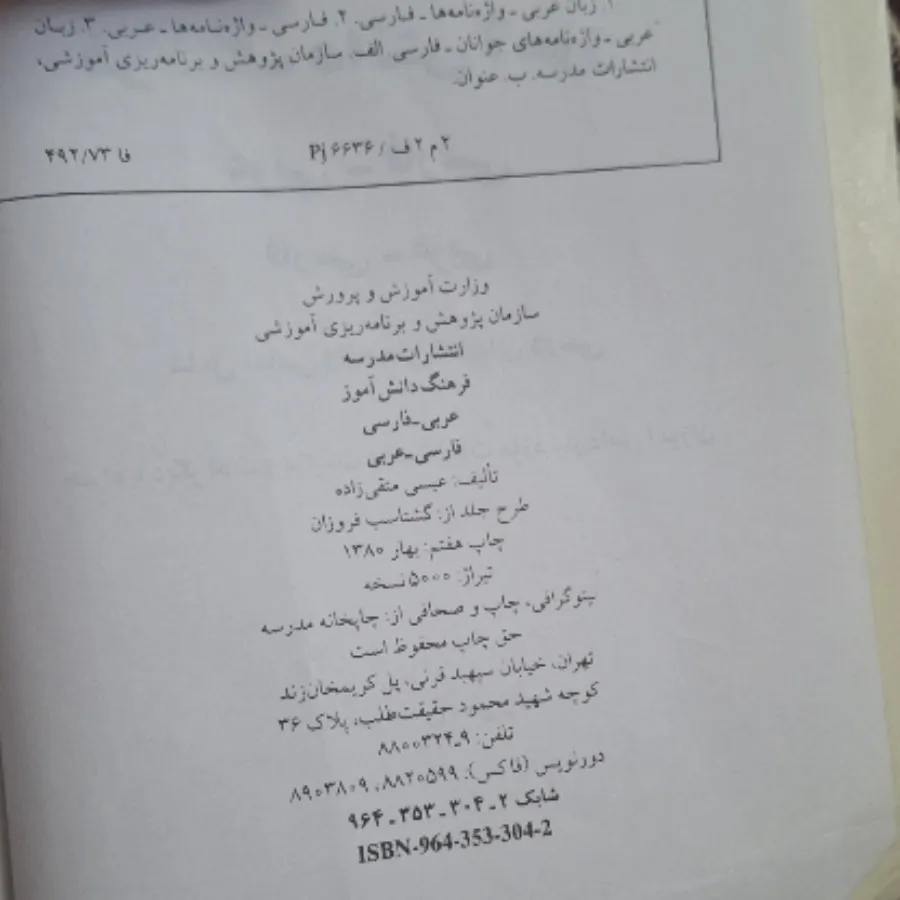 ۱. زبان عربی ـ واژه‌نامه‌ها ـ فارسی. ۲. فارسی ـ واژه‌نامه‌ها ـ عربی. ۳. زبان
عربی ـ واژه‌نامه‌های جوانان ـ فارسی. الف. سازمان پژوهش و برنامه‌ریزی آموزشی،
انتشارات مدرسه. ب. عنوان.
۲ م ۲ ف / ۶۶۳۶ Pj
۴۹۲/۷۳ فا
وزارت آموزش و پرورش
سازمان پژوهش و برنامه‌ریزی آموزشی
انتشارات مدرسه
فرهنگ دانش‌آموز
عربی-فارسی
فارسی-عربی
تألیف: عیسی متقی‌زاده
طرح جلد از: گشتاسب فروزان
چاپ هفتم: بهار ۱۳۸۰
تیراژ: ۵۰۰۰ نسخه
لیتوگرافی، چاپ و صحافی از: چاپخانه مدرسه
حق چاپ محفوظ است
تهران، خیابان سپهبد قرنی، پل کریمخان‌زند
کوچه شهید محمود حقیقت‌طلب، پلاک ۳۶
تلفن: ۹-۸۸۰۰۳۲۴
دورنویس (فاکس): ۸۸۲۰۵۹۹, ۸۹۰۳۸۰۹
شابک ۲ ـ ۳۰۴ ـ ۳۵۳ ـ ۹۶۴
ISBN-964-353-304-2